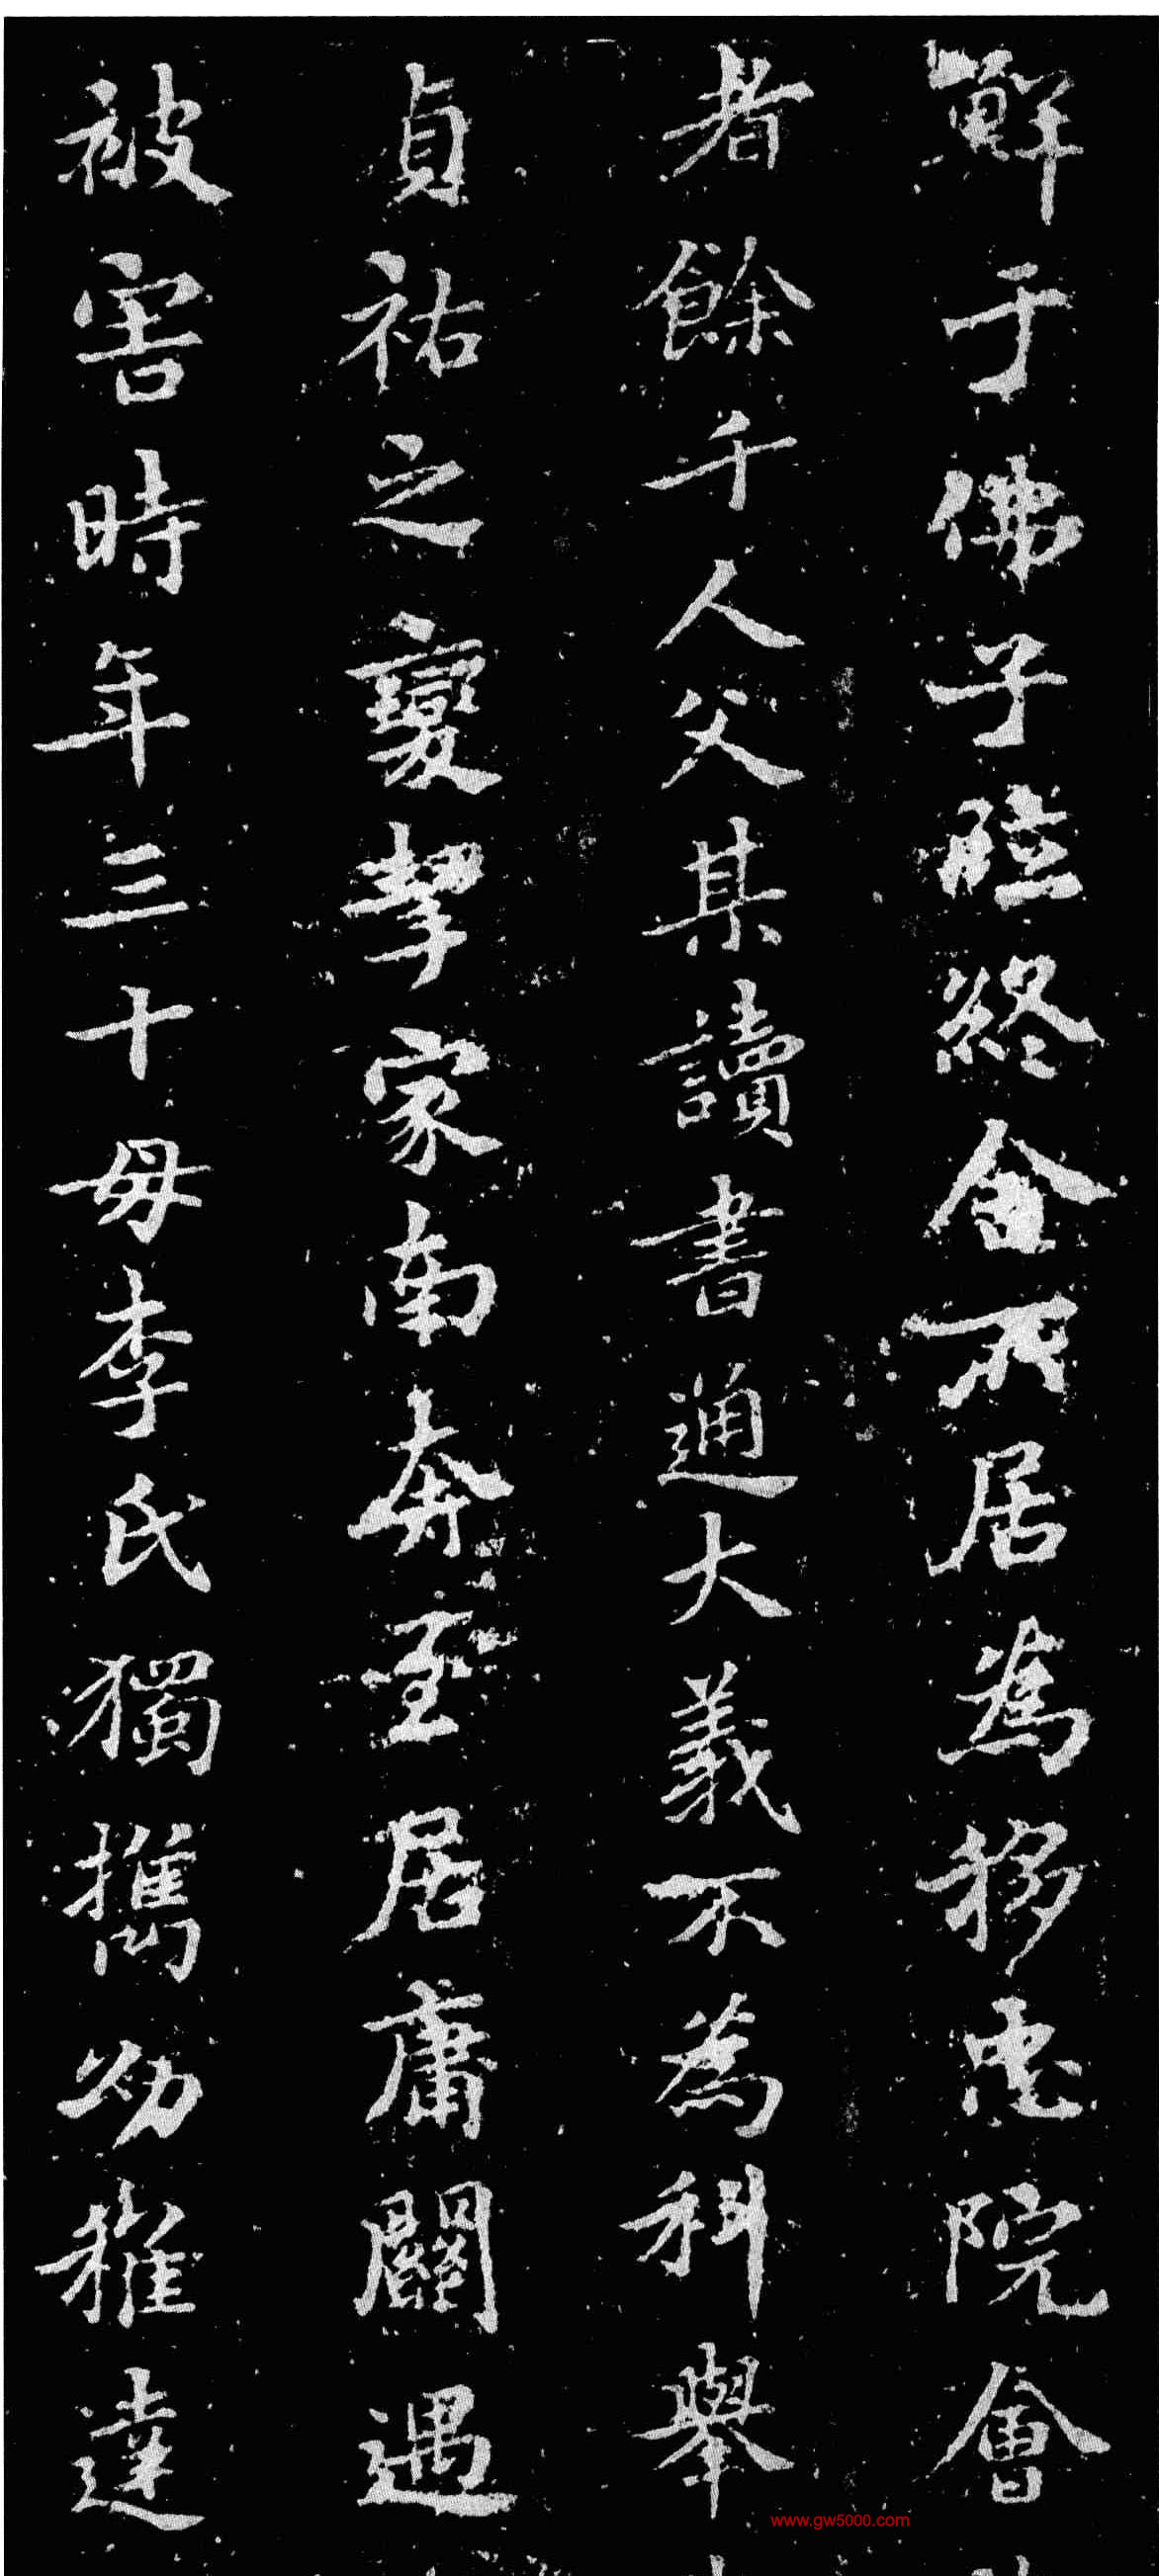 鮮于佛子 終 不居為移忠院會
者餘千人父某讀書通大義不為科舉
貞祐之變挈家南奔至居庸關遇
被害時年三十毋李氏獨攜幼稚達
www.gw5000.com